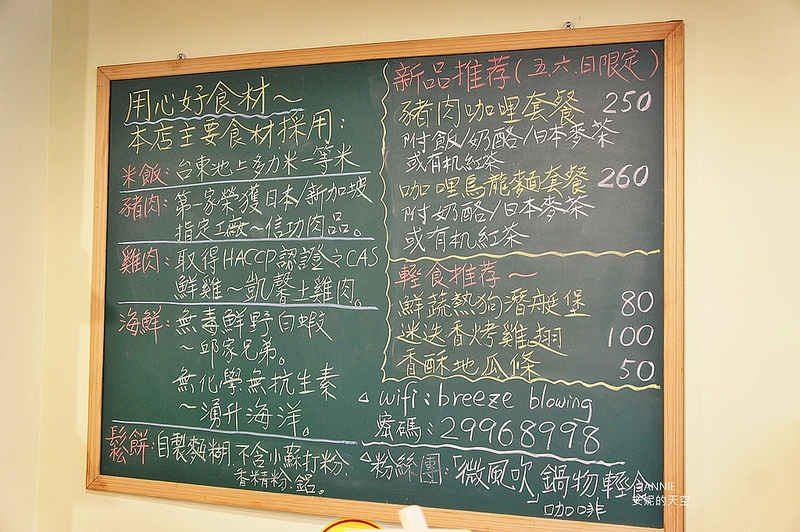 用心好食材～
本店主要食材採用：
米飯：台東池上多力米一等米
豬肉：第一家榮獲日本/新加坡
指定工廠～信功肉品。
雞肉：取得HACCP認證之CAS
鮮雞～凱馨土雞肉。
海鮮：無毒鮮野白蝦
～邱家兄弟。
無化學無抗生素
～湧升海洋。
鬆餅：自製麵糊.不含小蘇打粉、
香精粉.鋁。
新品推荐(五.六.日限定)
豬肉咖哩套餐 250
附飯/奶酪/日本麥茶
或有机紅茶
咖哩烏龍麵套餐 260
附奶酪/日本麥茶
或有机紅茶
輕食推荐～
鮮蔬熱狗潛艇堡 80
迷迭香烤雞翅 100
香酥地瓜條 50
△ wifi：breeze blowing
密碼：29968998
△粉絲團：「微風吹」鍋物輕食
咖啡
ANNIE
安妮的天空